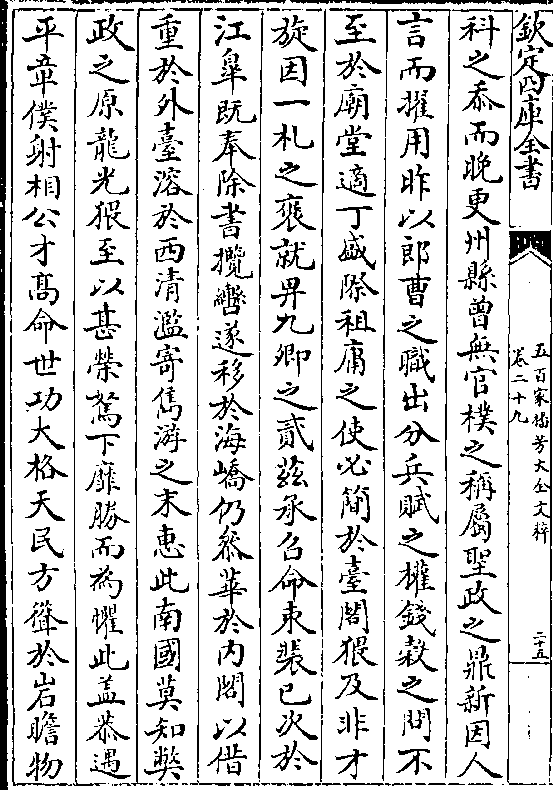 欽定四庫全書
五百家播芳大全文粹
卷二十九
二十五
科之忝而晚更州縣曾無官樸之稱屬聖政之鼎新因人
言而擢用昨以郎曹之職出分兵賦之權錢穀之問不
至於廟堂適丁盛際租庸之使必簡於臺閣猥及非才
旋因一札之褒就畀九卿之貳兹承召命束裝已次於
江臯既奉除書攬轡遂移於海嶠仍叅華於内閣以借
重於外臺溶於西清濫寄雋游之末惠此南國莫知獘
政之原龍光猥至以甚榮駑下靡勝而為懼此盖恭遇
平章僕射相公才髙命世功大格天民方聳於岩瞻物